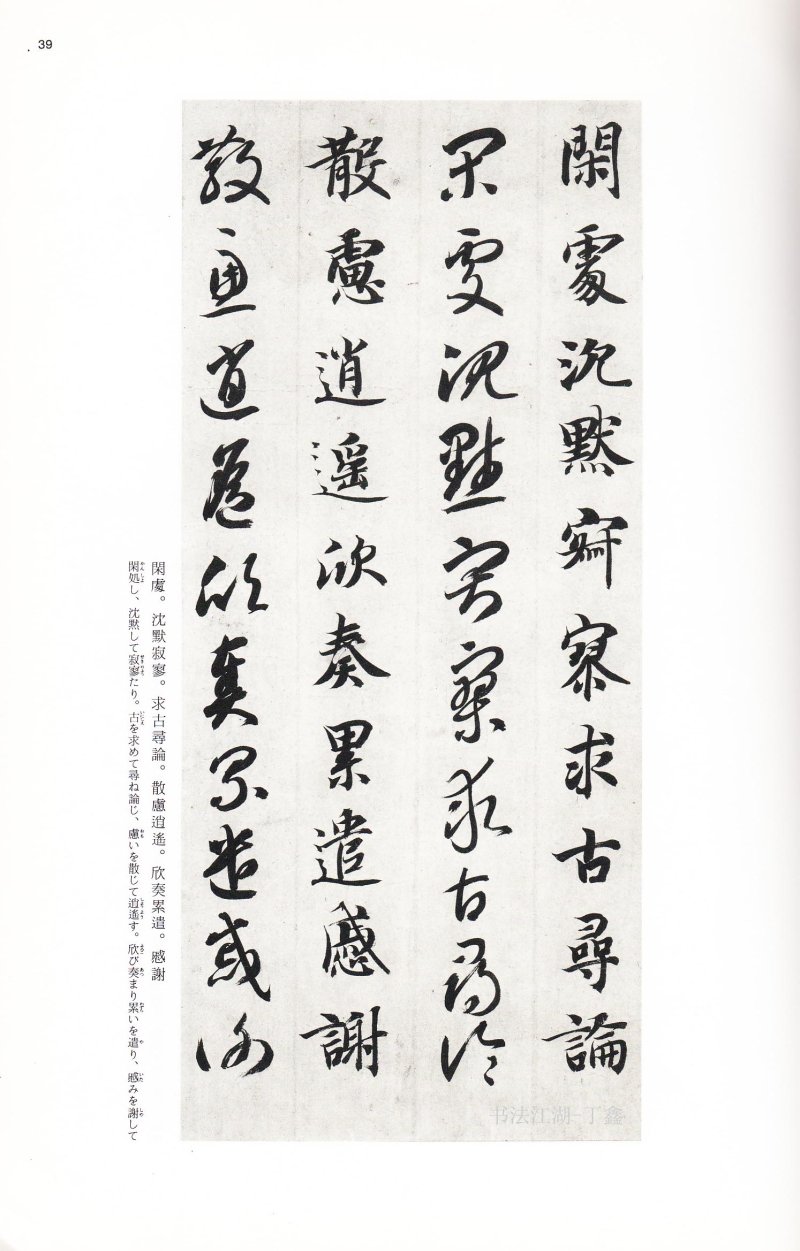 39
閑處沉黙寂寥求古尋論
閑處沉黙寂寥求古尋論
散慮逍遥欣奏累遣慼謝
散慮逍遥欣奏累遣慼謝
閑處。沈默寂寥。求古尋論。散慮逍遙。欣奏累遣。慼謝
閑処し、沈黙して寂寥たり。古を求めて尋ね論じ、慮いを散じて逍遙す。欣び奏まり累いを遣り、慼みを謝して
书法江湖-丁鑫